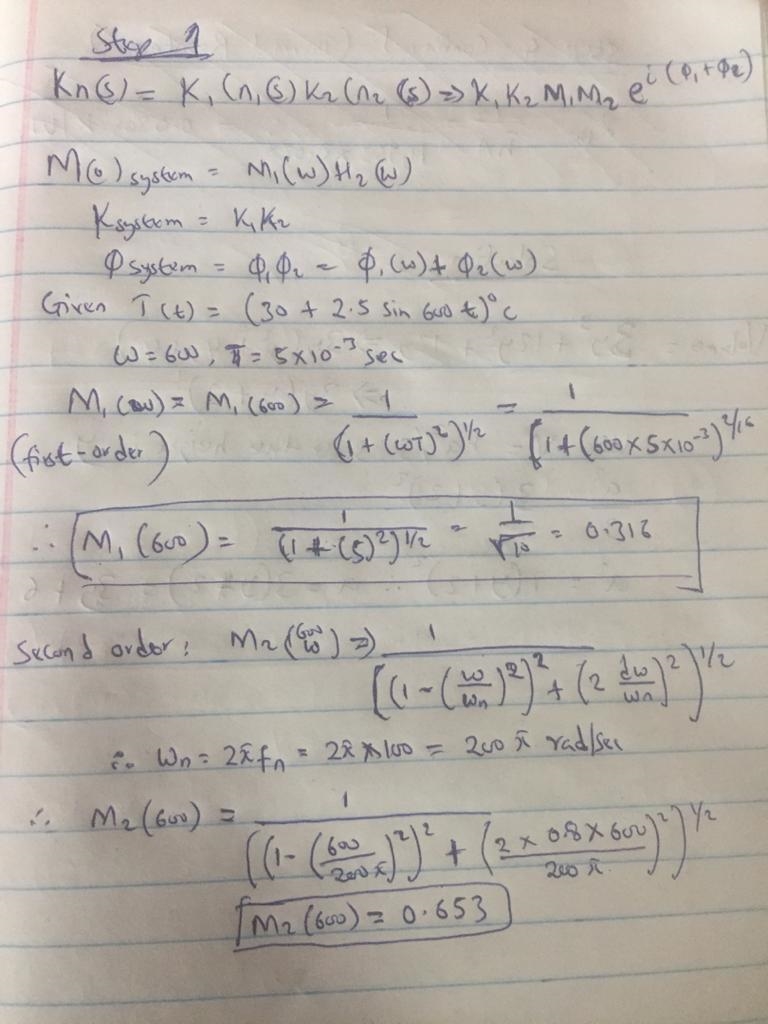 Step 1
Kn(s) = K, (n,(s) K2 (n2 (s) => K, K2 M, M2 e^i(Φ,+Φ2)
M(o) system = M1(w) H2(w)
Ksystem = K1K2
Φ system = Φ,Φ2 = Φ,(w)+ Φ2(w)
Given T(t) = (30 + 2.5 sin 600 t)°c
ω = 600, T = 5×10^-3 sec
M, (w) = M, (600) = 1/(1+(ωT)^2)^1/2 = 1/[1+(600×5×10^-3)^2/16
(first-order)
∴ [M, (600) = 1/(1+(5)^2)^1/2 = 1/√10 = 0.316
Second order: M2 (600 ω) => 1/[(1-(ω/ωn)^2)^2 + (2 dω/ωn)^2)^1/2
∴ ωn = 2πfn = 2π×100 = 200 π rad/sec
∴ M2 (600) = 1/((1-(600/200π)^2)^2 + (2 × 0.8 × 600/200 π)^2)^1/2
M2 (600) = 0.653